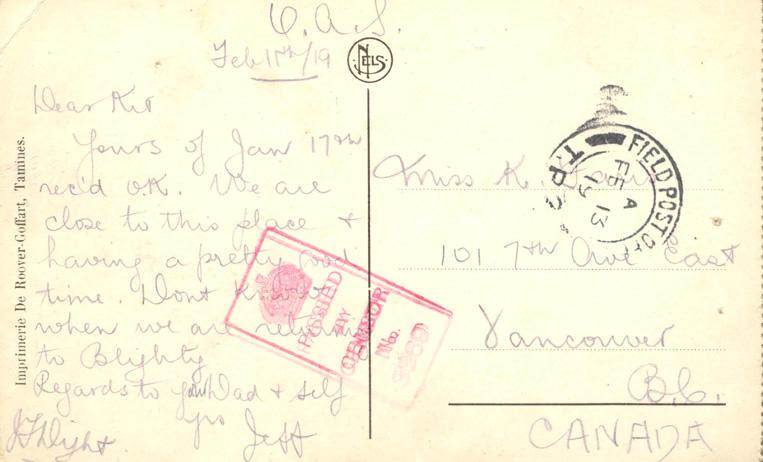 O. A. S.
Feb 11th/19
NELS
Dear Kit
Yours of Jan 17th
rec'd O.K. We are
close to this place &
having a pretty good
time. Dont know
when we are returning
to Blighty
Regards to your Dad & self
yrs Jeff
Imprimerie De Roover-Goffart, Tamines.
FIELD POST OFF
T.P.
A
FE 13
19
Miss K.
101 7th Ave East
Vancouver
B.C.
CANADA
PASSED
BY
CENSOR
No.